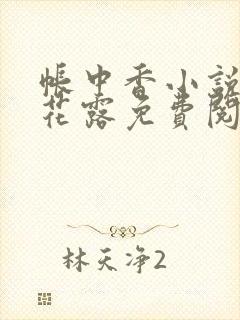 帐中香小說
花露免費閱
林天净2